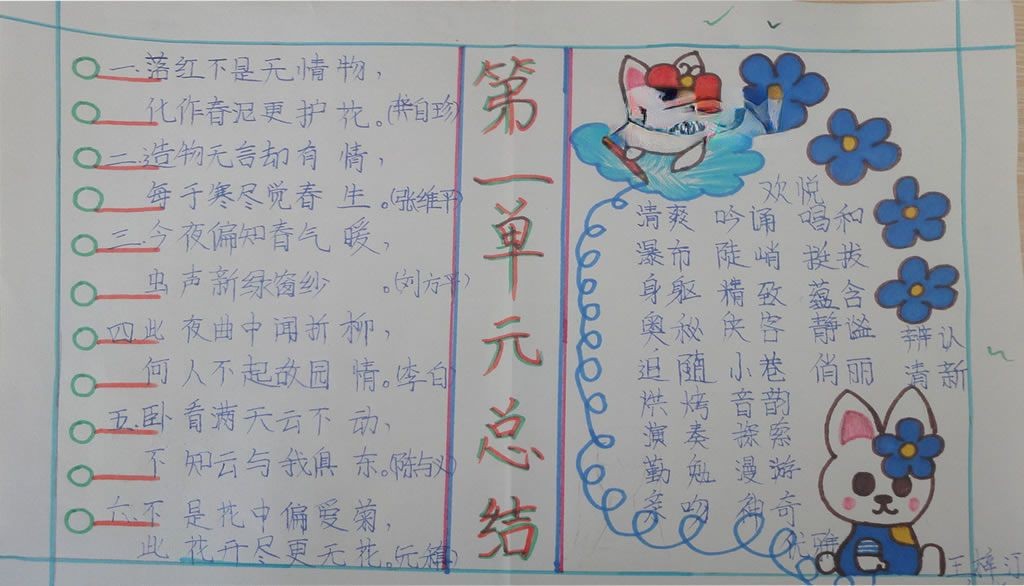 一.落红不是无情物，
化作春泥更护花。(龚自珍)
二.造物无言却有情，
每于寒尽觉春生。(张维平)
三.今夜偏知春气暖，
虫声新绿窗纱。(刘方平)
四.此夜曲中闻折柳，
何人不起故园情。(李白)
五.卧看满天云不动，
不知云与我俱东。(陈与义)
六.不是花中偏爱菊，
此花开尽更无花。(元稹)
第一单元总结
欢悦
清爽 吟诵 唱和
瀑布 陡峭 挺拔
身躯 精致 蕴含
奥秘 侠客 静谧 辨认
追随 小巷 俏丽 清新
烘烤 音韵
演奏 探索
勤勉 漫游
亲吻 神奇